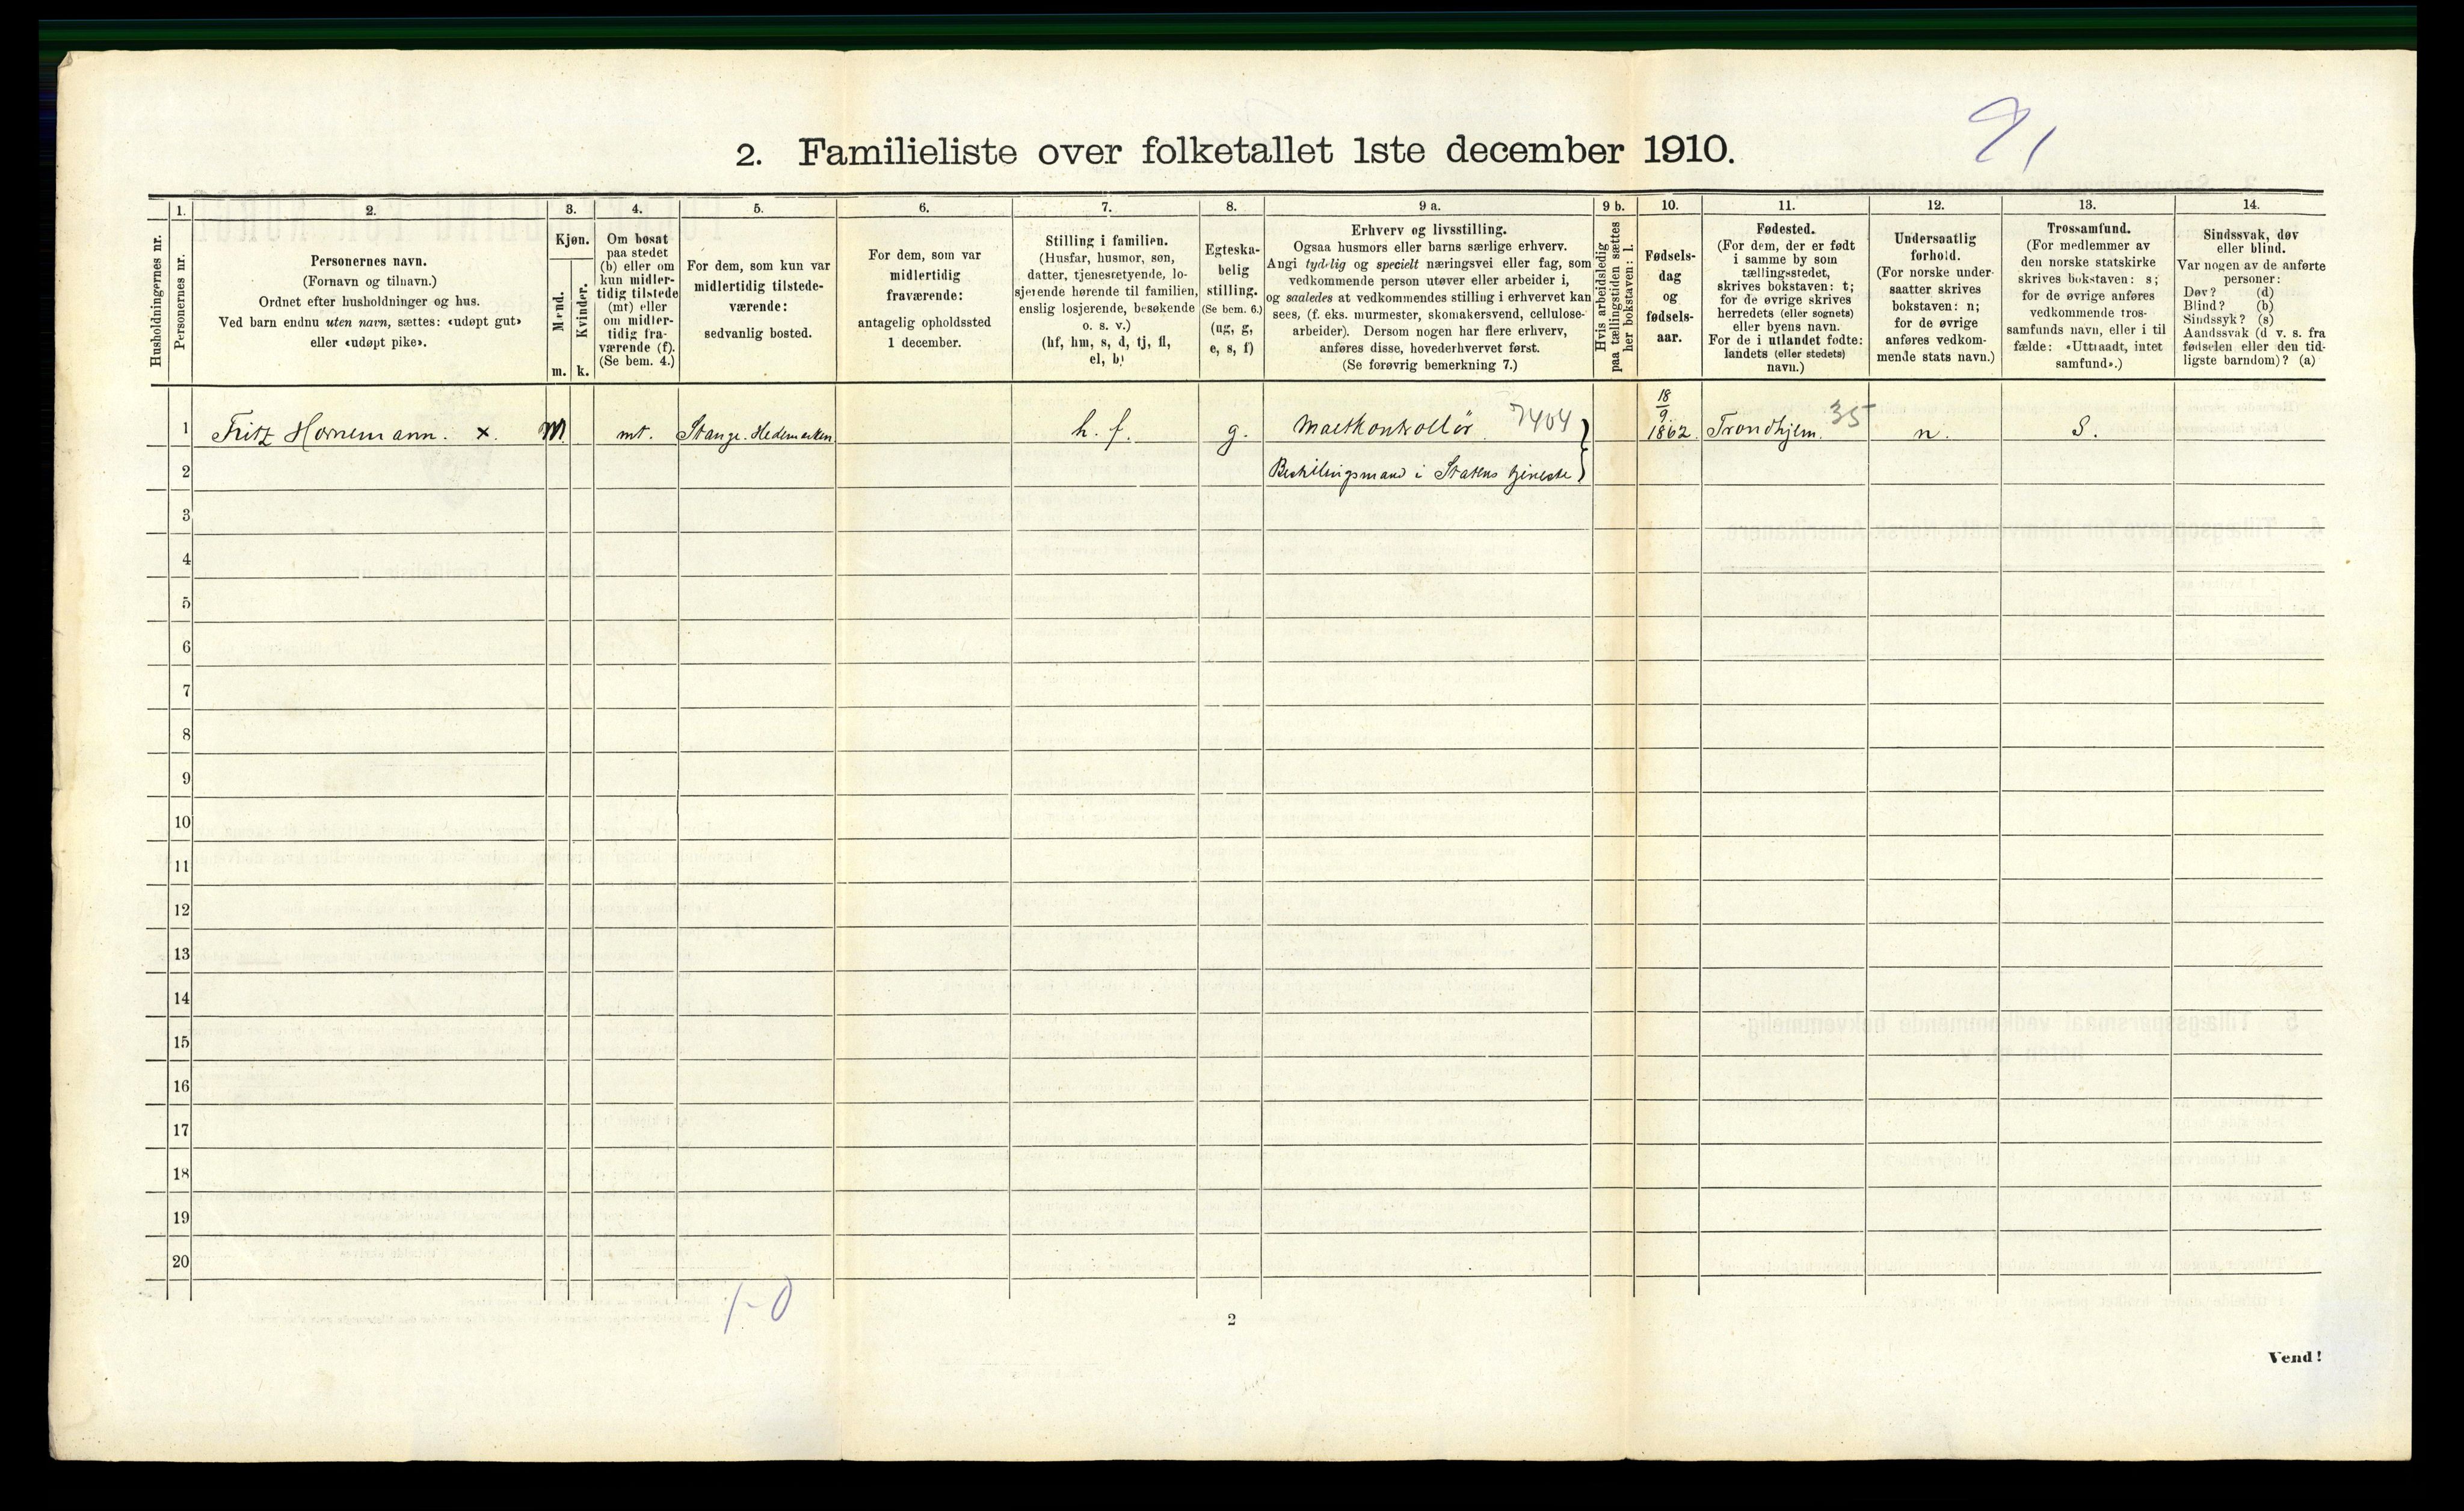 91
2. Familieliste over folketallet 1ste december 1910.
Husholdningernes nr.
1.
Personernes nr.
2.
Personernes navn.
(Fornavn og tilnavn.)
Ordnet efter husholdninger og hus.
Ved barn endnu uten navn, sættes: «udøpt gut»
eller «udøpt pike».
3.
Kjøn.
Mænd.
Kvinder.
m. k.
4.
Om bosat
paa stedet
(b) eller om
kun midler-
tidig tilstede
(mt) eller
om midler-
tidig fra-
værende (f).
(Se bem. 4.)
5.
For dem, som kun var
midlertidig tilstede-
værende:
sedvanlig bosted.
6.
For dem, som var
midlertidig
fraværende:
antagelig opholdssted
1 december.
7.
Stilling i familien.
(Husfar, husmor, søn,
datter, tjenestetyende, lo-
sjerende hørende til familien,
enslig losjerende, besøkende
o. s. v.)
(hf, hm, s, d, tj, fl,
el, b)
8.
Egteska-
belig
stilling.
(Se bem. 6.)
(ug, g,
e, s, f)
9 a.
Erhverv og livsstilling.
Ogsaa husmors eller barns særlige erhverv.
Angi tydelig og specielt næringsvei eller fag, som
vedkommende person utøver eller arbeider i,
og saaledes at vedkommendes stilling i erhvervet kan
sees, (f. eks. murmester, skomakersvend, cellulose-
arbeider). Dersom nogen har flere erhverv,
anføres disse, hovederhvervet først.
(Se forøvrig bemerkning 7.)
9 b.
Hvis arbeidsledig
paa tællingstiden sættes
her bokstaven: l.
10.
Fødsels-
dag
og
fødsels-
aar.
11.
Fødested.
(For dem, der er født
i samme by som
tællingsstedet,
skrives bokstaven: t;
for de øvrige skrives
herredets (eller sognets)
eller byens navn.
For de i utlandet fødte:
landets (eller stedets)
navn.)
12.
Undersaatlig
forhold.
(For norske under-
saatter skrives
bokstaven: n;
for de øvrige
anføres vedkom-
mende stats navn.)
13.
Trossamfund.
(For medlemmer av
den norske statskirke
skrives bokstaven: s;
for de øvrige anføres
vedkommende tros-
samfunds navn, eller i til
fælde: «Uttraadt, intet
samfund».)
14.
Sindssvak, døv
eller blind.
Var nogen av de anførte
personer:
Døv? (d)
Blind? (b)
Sindssyk? (s)
Aandssvak (d v. s. fra
fødselen eller den tid-
ligste barndom)? (a)
1 Fritz Hornemann. x. M mt. Stange. Hedemarken h. f. g. Maltkontrollør 7404 18/9 1862 Trondhjem. 35 n. S.
2 Bestilingsmand i Statens tjeneste
3
4
5
6
7
8
9
10
11
12
13
14
15
16
17
18
19
20
1-0
2
Vend!